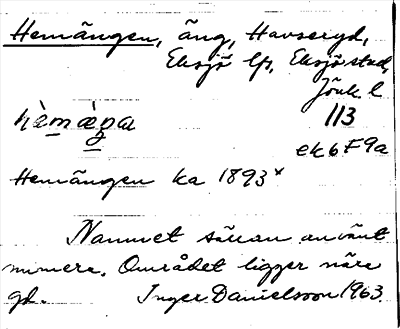 Hemängen, äng, Havseryd,
Eksjö lfs, Eksjö stad,
Jönk. l
hèmæ̀ŋa 113
ek 6 F 9a
Hemängen ka 1893 x
Namnet sällan använt
numera. Området ligger nära
gd. Inger Danielsson 1963.